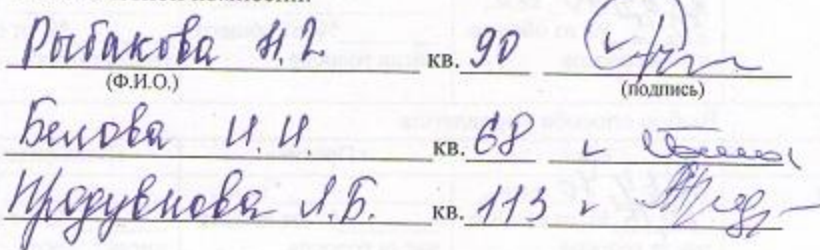 Рыбакова Н.Г. кв. 90
(Ф.И.О.) (подпись)
Белова И.И. кв. 68
Продувнова Л.Б. кв. 113